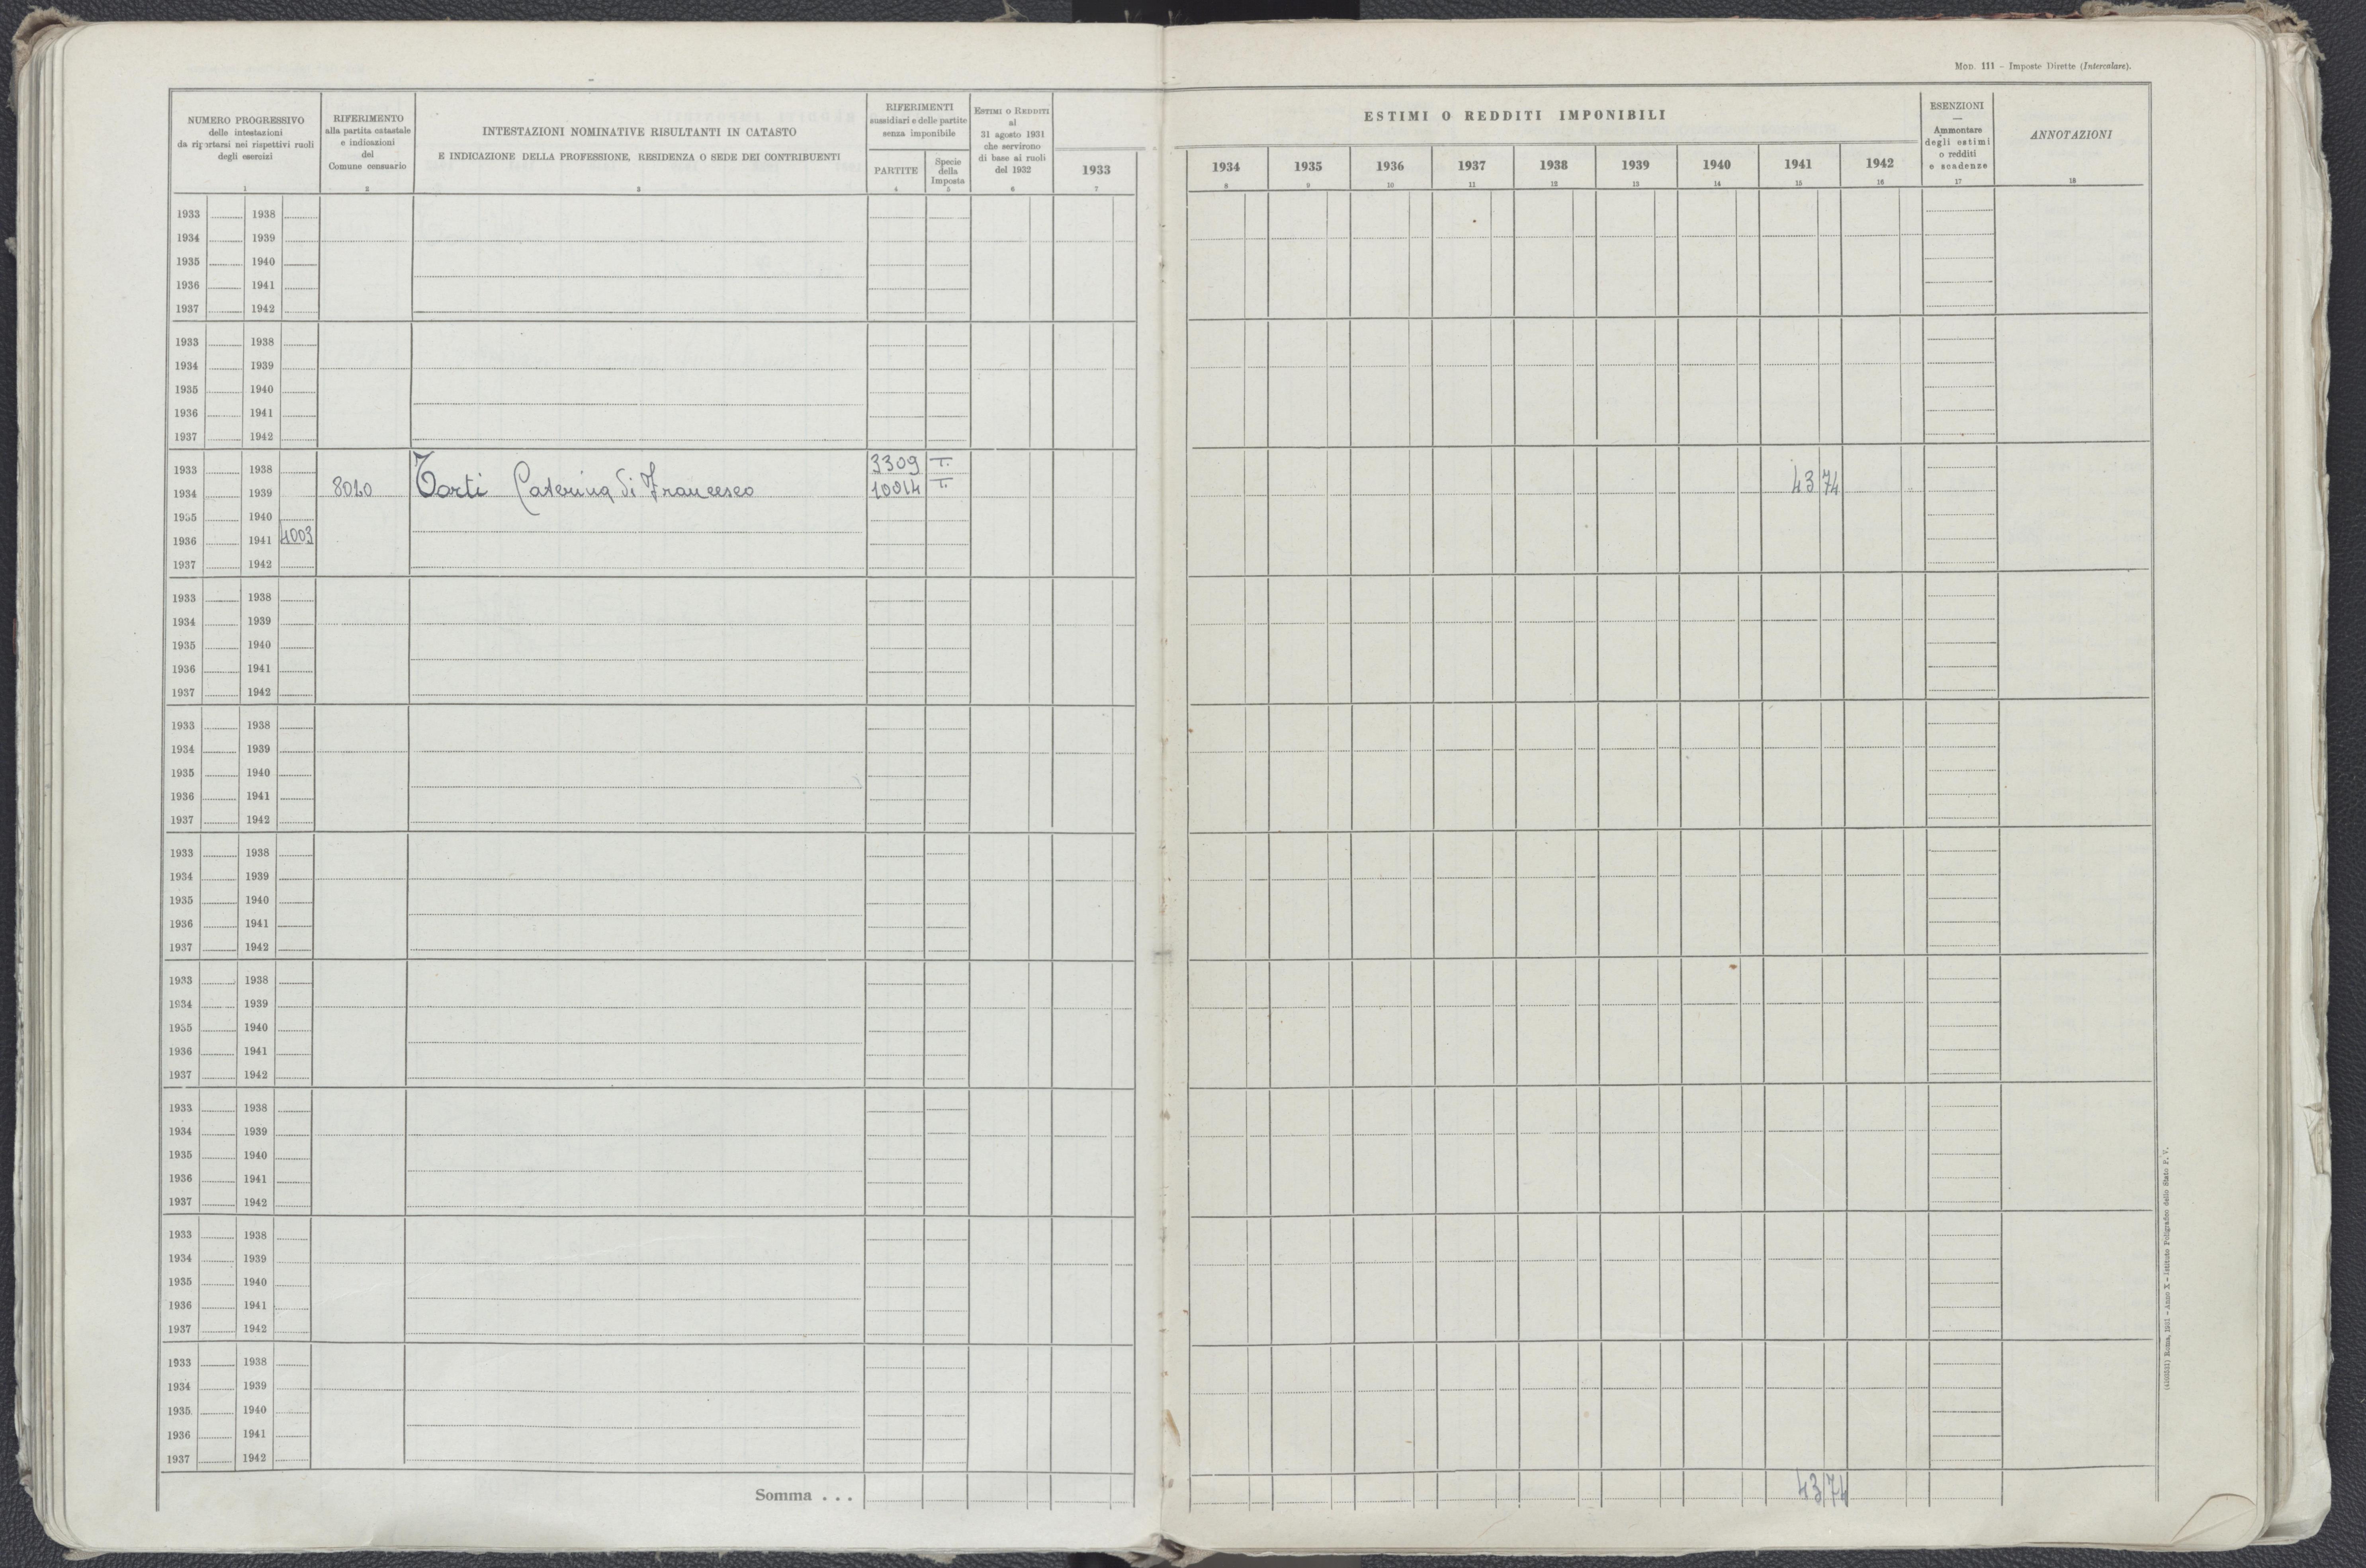 MOD. 111 – Imposte Dirette (Intercalare).
NUMERO PROGRESSIVO
delle intestazioni
da riportarsi nei rispettivi ruoli
degli esercizi
1
RIFERIMENTO
alla partita catastale
e indicazioni
del
Comune censuario
2
INTESTAZIONI NOMINATIVE RISULTANTI IN CATASTO
E INDICAZIONE DELLA PROFESSIONE, RESIDENZA O SEDE DEI CONTRIBUENTI
3
RIFERIMENTI
sussidiari e delle partite
senza imponibile
PARTITE
4
Specie
della
Imposta
5
ESTIMI O REDDITI
al
31 agosto 1931
che servirono
di base ai ruoli
del 1932
6
1933
7
ESTIMI O REDDITI IMPONIBILI
1934 1935 1936 1937 1938 1939 1940 1941 1942
8 9 10 11 12 13 14 15 16
ESENZIONI
—
Ammontare
degli estimi
o redditi
e scadenze
17
ANNOTAZIONI
18
1933 1938
1934 1939
1935 1940
1936 1941
1937 1942
1933 1938
1934 1939
1935 1940
1936 1941
1937 1942
1933 1938 3309 T.
1934 1939 8020 Torti Caterina di Francesco 10014 T. 43 74
1935 1940
1936 1941 4003
1937 1942
1933 1938
1934 1939
1935 1940
1936 1941
1937 1942
1933 1938
1934 1939
1935 1940
1936 1941
1937 1942
1933 1938
1934 1939
1935 1940
1936 1941
1937 1942
1933 1938
1934 1939
1935 1940
1936 1941
1937 1942
1933 1938
1934 1939
1935 1940
1936 1941
1937 1942
1933 1938
1934 1939
1935 1940
1936 1941
1937 1942
1933 1938
1934 1939
1935 1940
1936 1941
1937 1942
Somma . . . 43 74
Roma, 1931 – Anno X – Istituto Poligrafico dello Stato P. V.